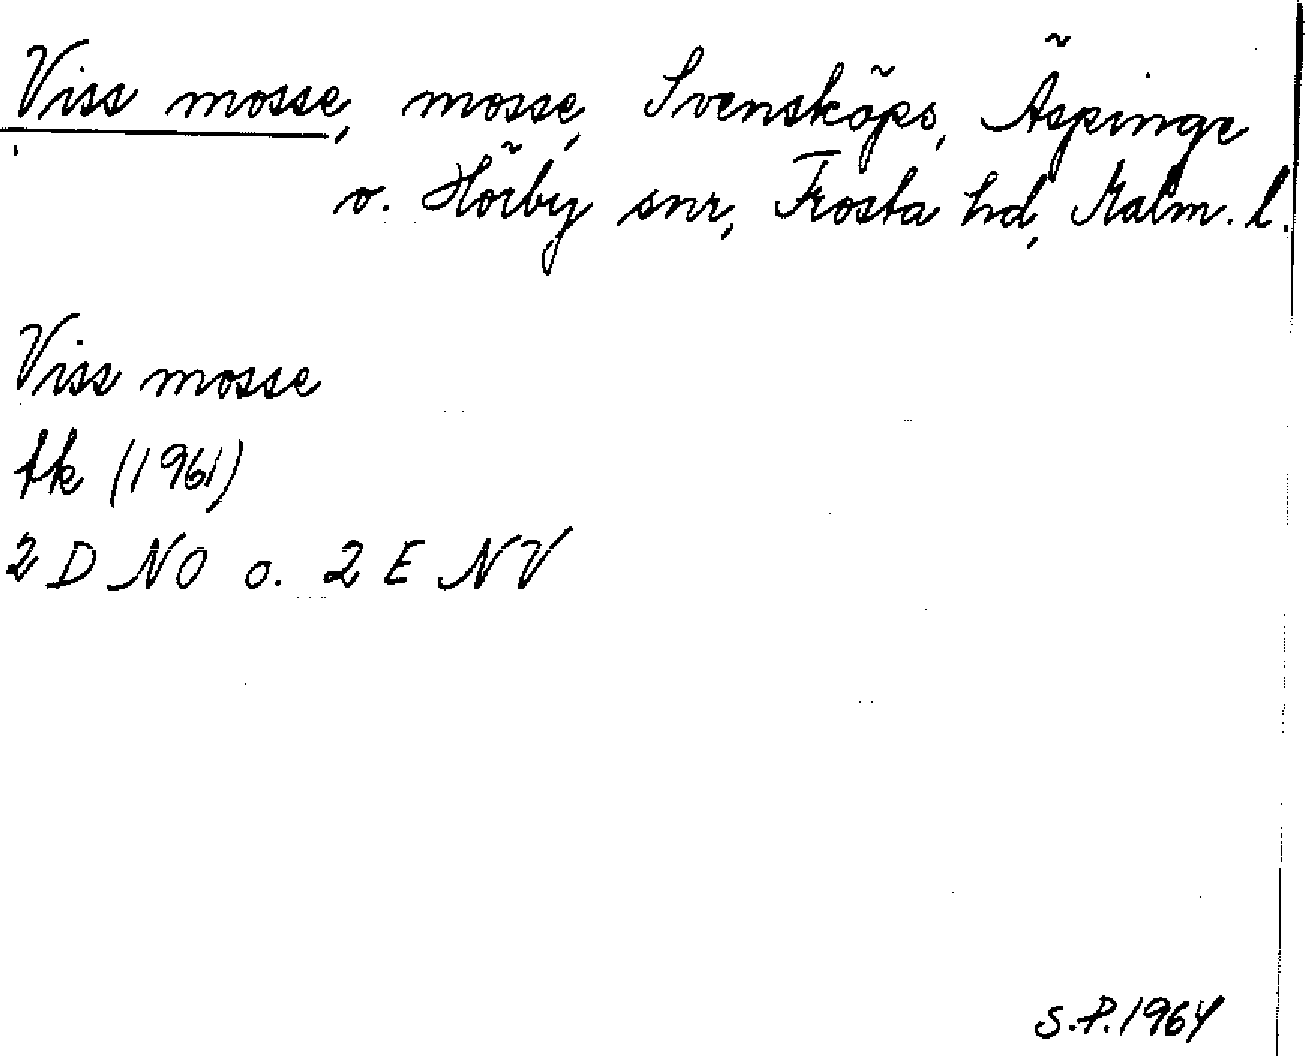 Viss mosse, mosse, Svensköps, Äspinge
o. Hörby snr, Frosta hd, Malm. l.
Viss mosse
fk (1961)
2 D NO o. 2 E NV
S.P. 1964